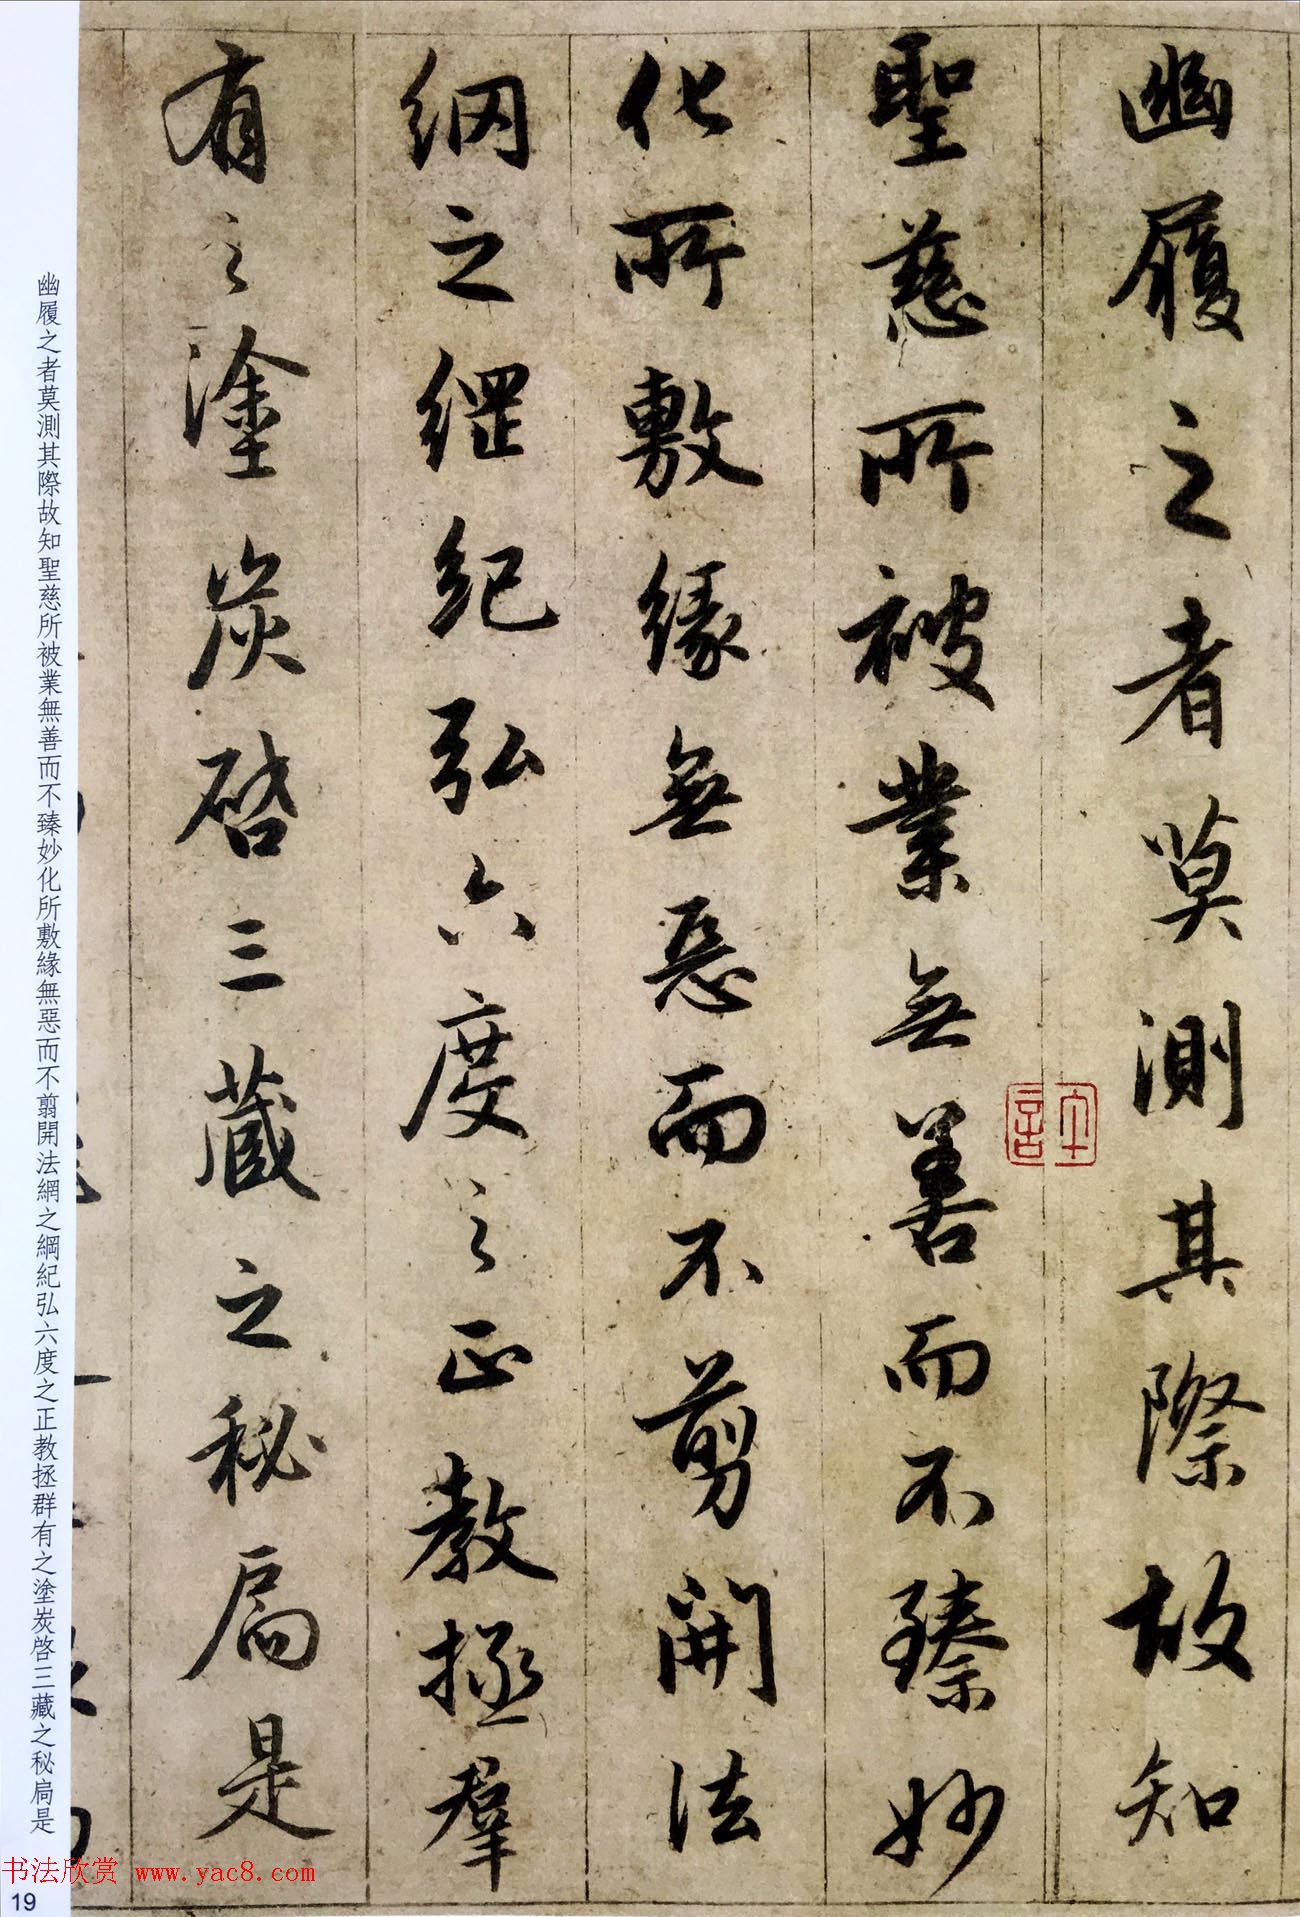 幽履之者莫測其際故知
聖慈所被業無善而不臻妙
化所敷緣無惡而不剪開法
網之綱紀弘六度之正教拯羣
有之塗炭啓三藏之秘扃是
幽履之者莫測其際故知聖慈所被業無善而不臻妙化所敷緣無惡而不翦開法網之綱紀弘六度之正教拯群有之塗炭啓三藏之秘扃是
书法欣赏 www.yac8.com
19